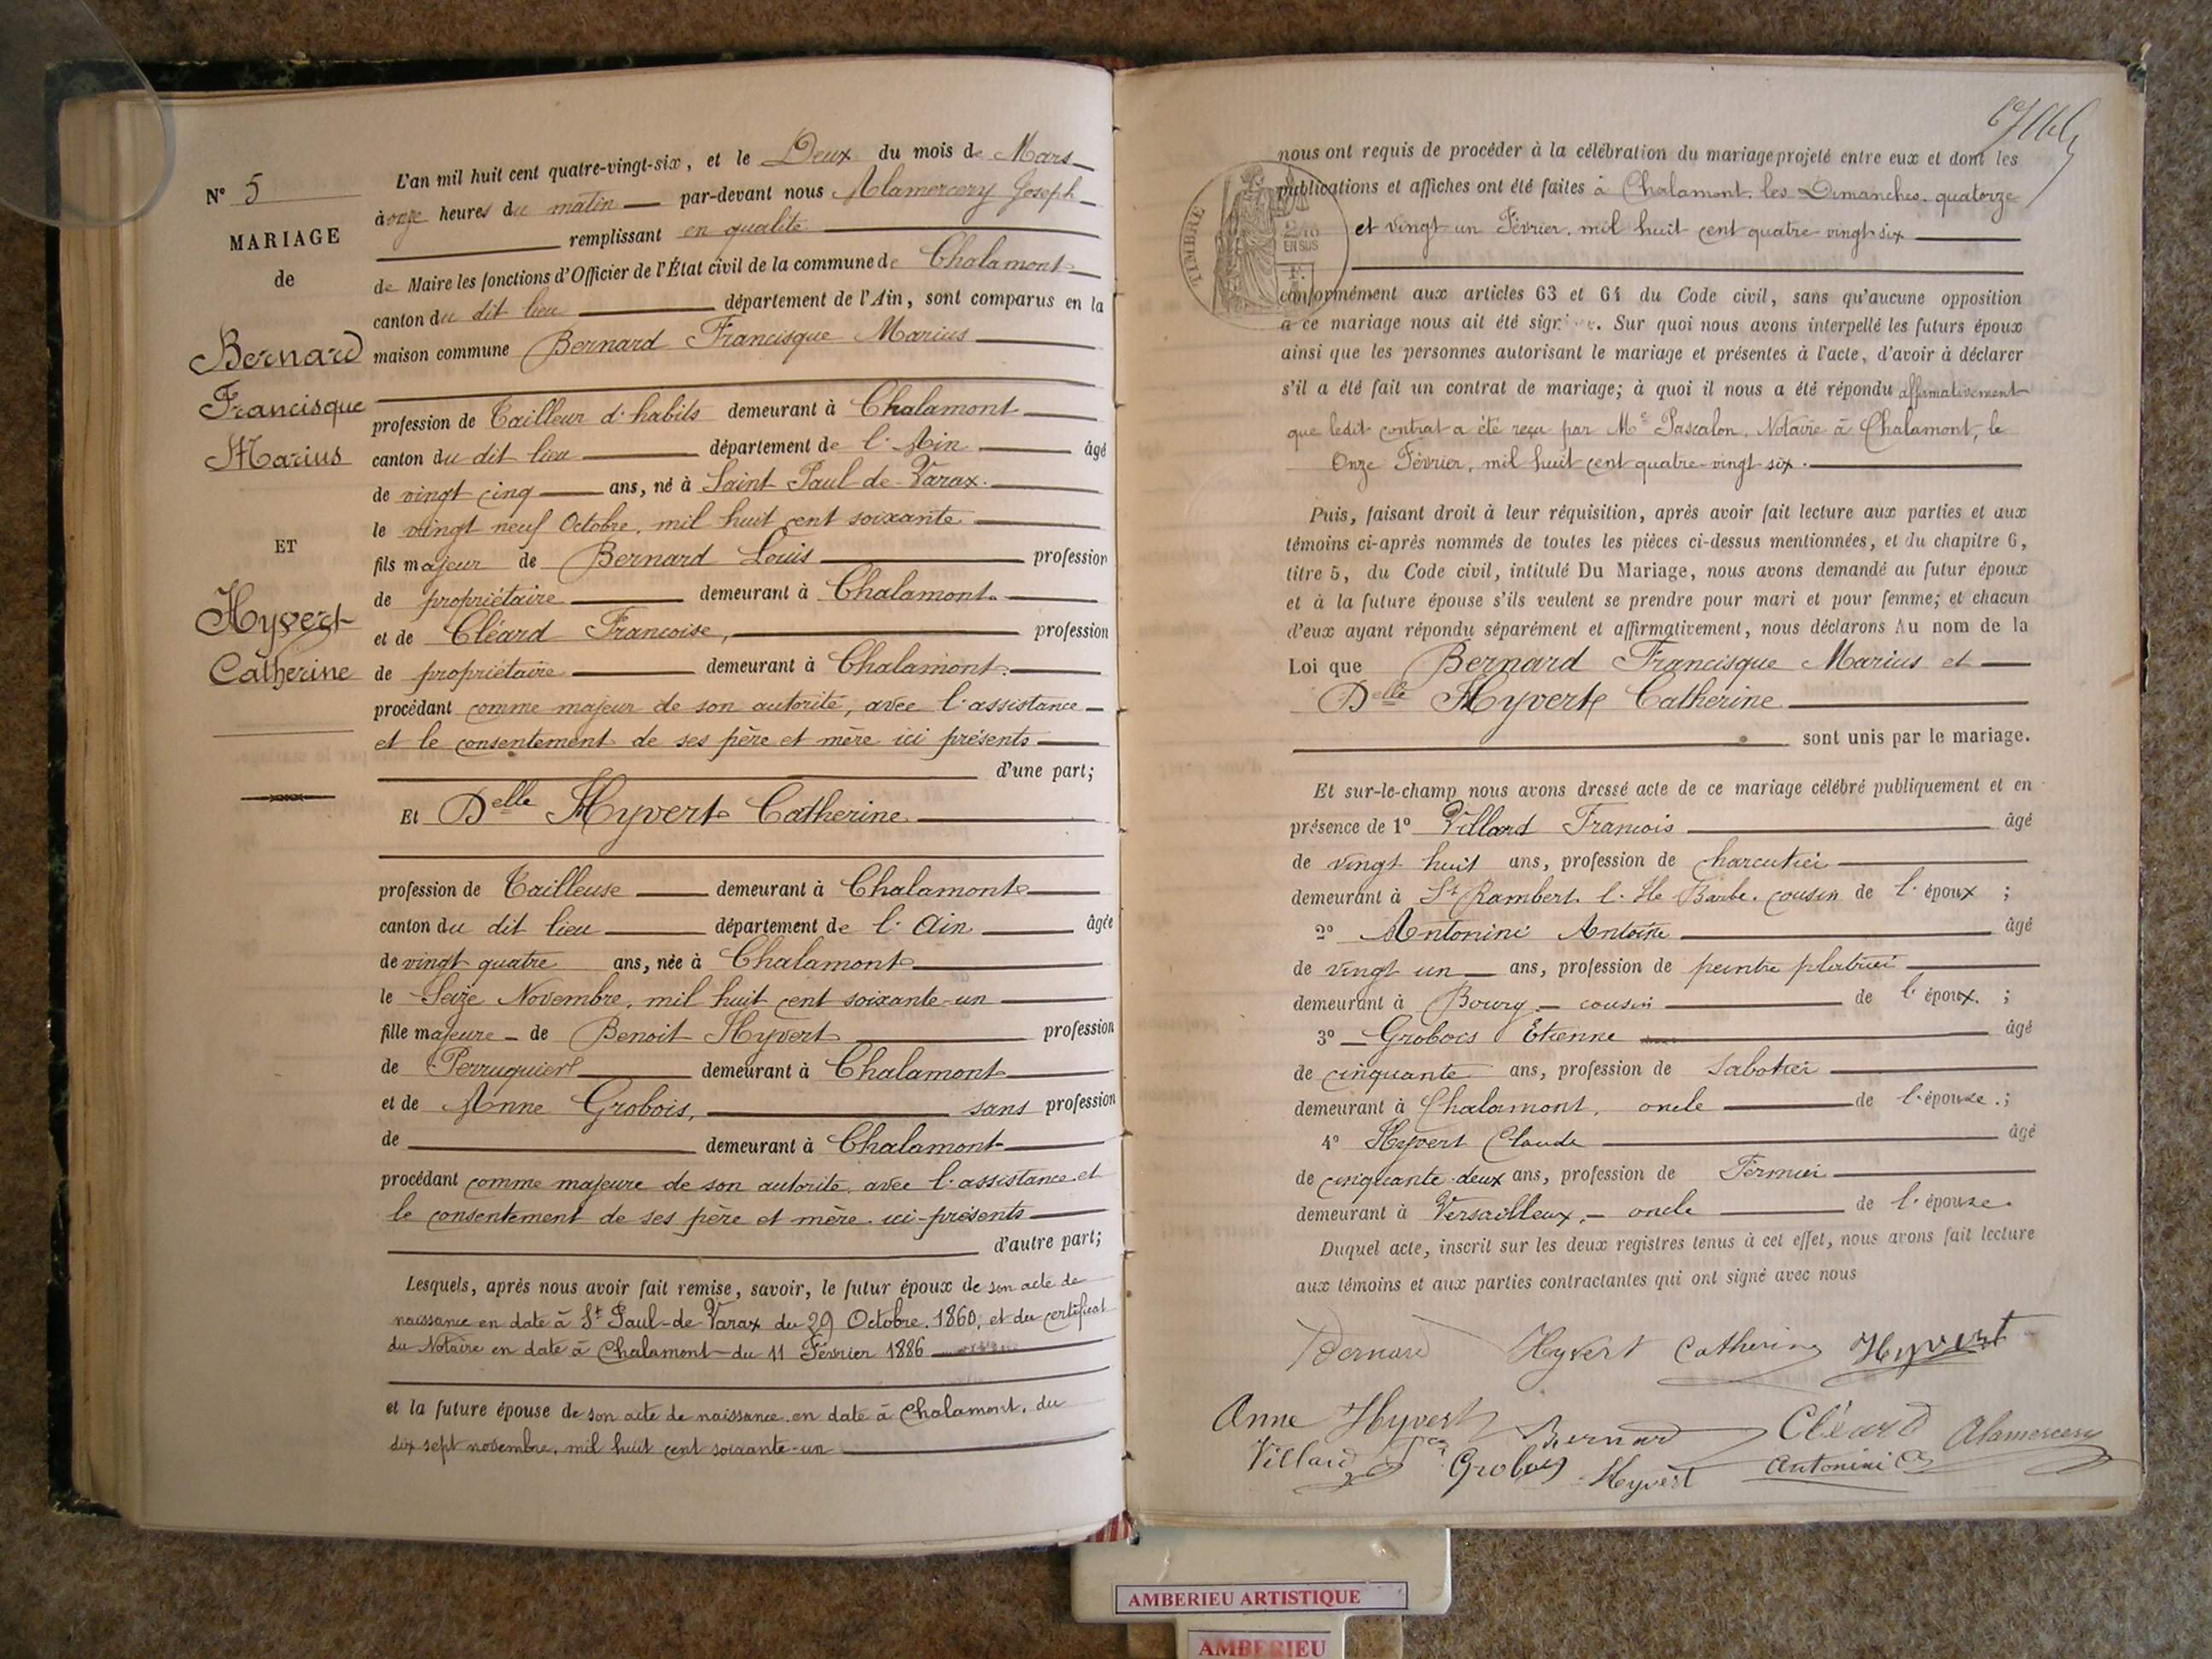 N° 5
MARIAGE
de
Bernard
Francisque
Marius
ET
Hyvert
Catherine
L'an mil huit cent quatre-vingt-six, et le Deux du mois de Mars
à onze heures du matin par-devant nous Alamercery Joseph
remplissant en qualité
de Maire les fonctions d'Officier de l'État civil de la commune de Chalamont
canton du dit lieu département de l'Ain, sont comparus en la
maison commune Bernard Francisque Marius
profession de Tailleur d'habits demeurant à Chalamont
canton du dit lieu département de l'Ain âgé
de vingt cinq ans, né à Saint Paul-de-Varax.
le vingt neuf Octobre, mil huit cent soixante
fils majeur de Bernard Louis profession
de propriétaire demeurant à Chalamont.
et de Cléard Francoise, profession
de propriétaire demeurant à Chalamont.
procédant comme majeur de son autorité, avec l'assistance
et le consentement de ses père et mère ici présents
d'une part;
Et Delle Hyvert Catherine
profession de Tailleuse demeurant à Chalamont
canton du dit lieu département de l'Ain âgée
de vingt quatre ans, née à Chalamont
le Seize Novembre, mil huit cent soixante-un
fille majeure de Benoit Hyvert profession
de Perruquier demeurant à Chalamont
et de Anne Grobois, sans profession
de demeurant à Chalamont
procédant comme majeure de son autorité, avec l'assistance et
le consentement de ses père et mère ici-présents
d'autre part;
Lesquels, après nous avoir fait remise, savoir, le futur époux de son acte de
naissance en date à St Paul-de-Varax du 29 Octobre. 1860, et du certificat
du Notaire en date à Chalamont du 11 Février 1886
et la future épouse de son acte de naissance en date à Chalamont, du
dix sept novembre, mil huit cent soixante-un
nous ont requis de procéder à la célébration du mariage projeté entre eux et dont les
publications et affiches ont été faites à Chalamont, les Dimanches, quatorze
et vingt un Février, mil huit cent quatre vingt-six
TIMBRE
EN SUS
conformément aux articles 63 et 64 du Code civil, sans qu'aucune opposition
à ce mariage nous ait été signifiée. Sur quoi nous avons interpellé les futurs époux
ainsi que les personnes autorisant le mariage et présentes à l'acte, d'avoir à déclarer
s'il a été fait un contrat de mariage; à quoi il nous a été répondu affirmativement
que ledit contrat a été reçu par Me Pascalon, Notaire à Chalamont, le
Onze Février, mil huit cent quatre-vingt six.
Puis, faisant droit à leur réquisition, après avoir fait lecture aux parties et aux
témoins ci-après nommés de toutes les pièces ci-dessus mentionnées, et du chapitre 6,
titre 5, du Code civil, intitulé Du Mariage, nous avons demandé au futur époux
et à la future épouse s'ils veulent se prendre pour mari et pour femme; et chacun
d'eux ayant répondu séparément et affirmativement, nous déclarons Au nom de la
Loi que Bernard Francisque Marius et
Delle Hyvert Catherine
sont unis par le mariage.
Et sur-le-champ nous avons dressé acte de ce mariage célébré publiquement et en
présence de 1° Villard Francois âgé
de vingt huit ans, profession de charcutier
demeurant à St Rambert l'Ile Barbe. cousin de l'époux ;
2° Antonini Antoine âgé
de vingt un ans, profession de peintre platrier
demeurant à Bourg cousin de l'époux. ;
3° Grobois Etienne âgé
de cinquante ans, profession de sabotier
demeurant à Chalamont, oncle de l'épouse. ;
4° Hyvert Claude âgé
de cinquante deux ans, profession de Fermier
demeurant à Versailleux, oncle de l'épouse.
Duquel acte, inscrit sur les deux registres tenus à cet effet, nous avons fait lecture
aux témoins et aux parties contractantes qui ont signé avec nous
Bernard Hyvert Catherine Hyvert
Anne Hyvert Bernard Cléard Alamercery
Villard Grobois Hyvert Antonini
AMBERIEU ARTISTIQUE
AMBERIEU